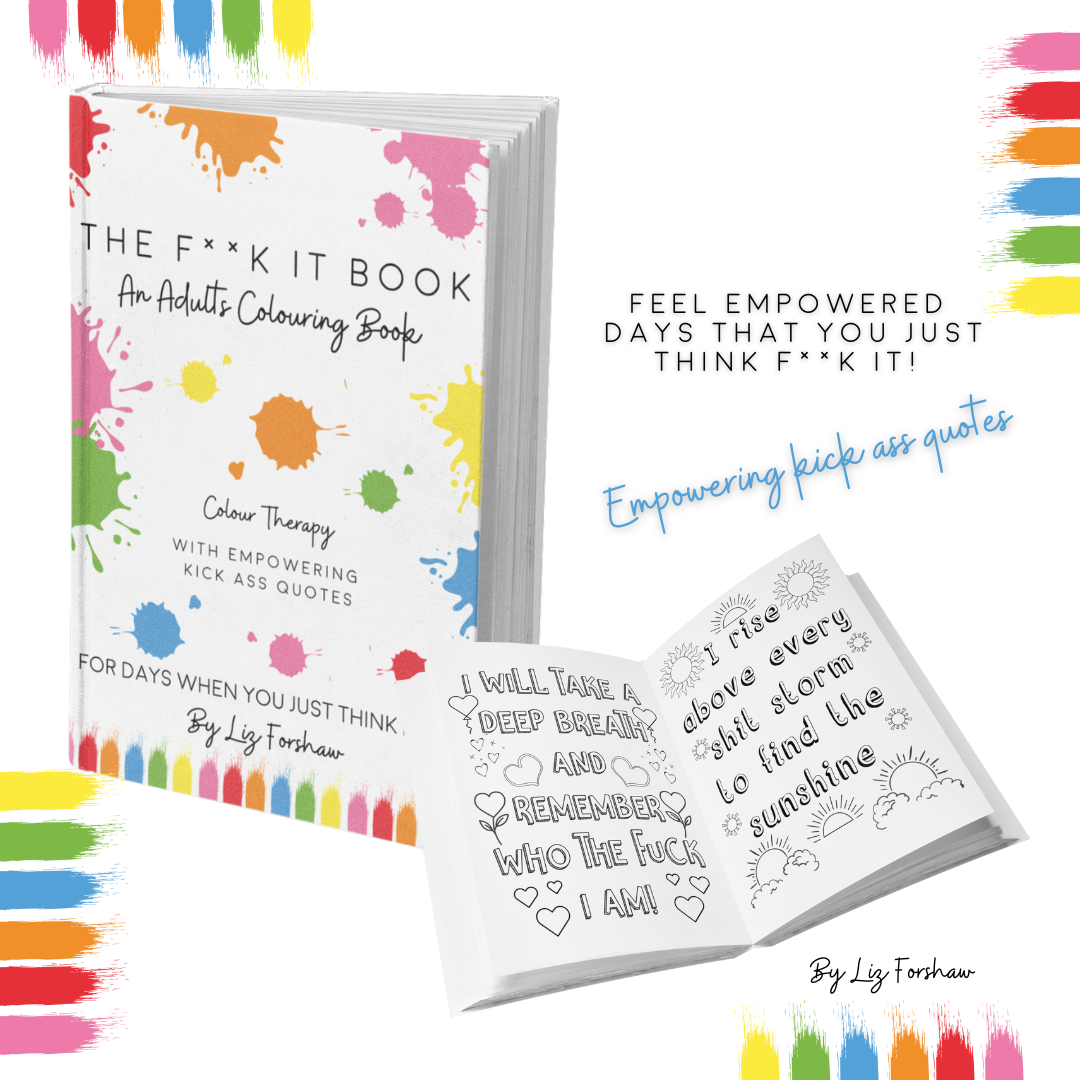 THE F**K IT BOOK
An Adults Colouring Book
Colour Therapy
WITH EMPOWERING
KICK ASS QUOTES
FOR DAYS WHEN YOU JUST THINK
By Liz Forshaw
FEEL EMPOWERED
DAYS THAT YOU JUST
THINK F**K IT!
Empowering kick ass quotes
I WILL TAKE A
DEEP BREATH
AND
REMEMBER
WHO THE FUCK
I AM!
I rise
above every
shit storm
to find the
sunshine
By Liz Forshaw